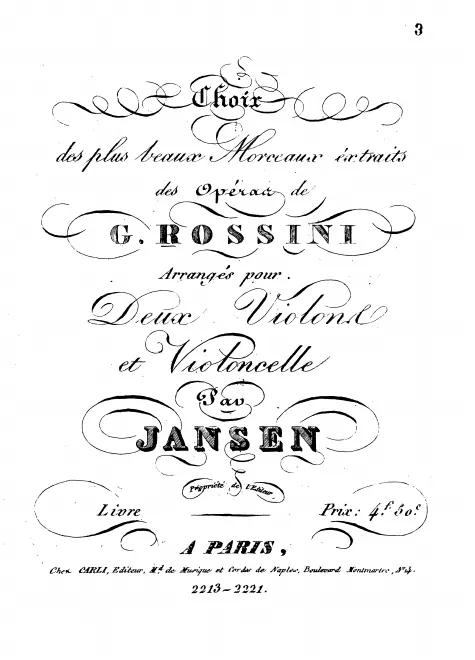 3
Choix
des plus beaux Morceaux extraits
des Opéras de
G. ROSSINI
Arrangés pour.
Deux Violons
et Violoncelle
Par
JANSEN
Propriété de l'Editeur
Livre Prix: 4f. 50c.
A PARIS,
Chez CARLI, Editeur, Md. de Musique et Cordes de Naples, Boulevard Montmartre, No. 14.
2213-2221.